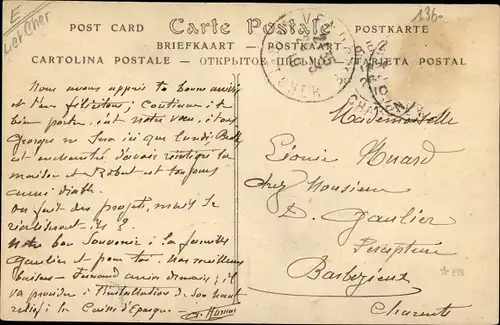 E
Loir et Cher
136-
POST CARD Carte Postale POSTKARTE
BRIEFKAART — POSTKAART
CARTOLINA POSTALE — ОТКРЫТОЕ ПИСЬМО — TARJETA POSTAL
Nous avons appris ta bonne arrivée
et t'en félicitons; continue à te
bien porter, c'est notre vœu, à tous
Georges ne sera ici que lundi,
est enchanté d'avoir réintégré la
maison et Robert est toujours
aussi diable.
On fait des projets, mais se
réaliseront-ils?
Notre bon Souvenir à la famille
Gaulier et pour toi nos meilleurs
baisers - Fernand arrive demain; il
va procéder à l'installation de son
relief, la Caisse d'Epargne -
Mademoiselle
Léonie Huard
chez Monsieur
E. Gaulier
Percepteur
Barbezieux
Charente